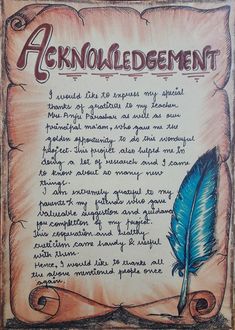 ACKNOWLEDGEMENT
I would like to express my special
thanks of gratitude to my teacher
Mrs Anju Parashar as well as our
principal ma'am, who gave me the
golden opportunity to do this wonderful
project. This project also helped me in
doing a lot of research and I came
to know about so many new
things.
I am extremely grateful to my
parents & my friends who gave
valueable suggestion and guidance
for completion of my project.
This cooperation and healthy
criticism came handy & useful
with them.
Hence, I would like to thanks all
the above mentioned people once
again.